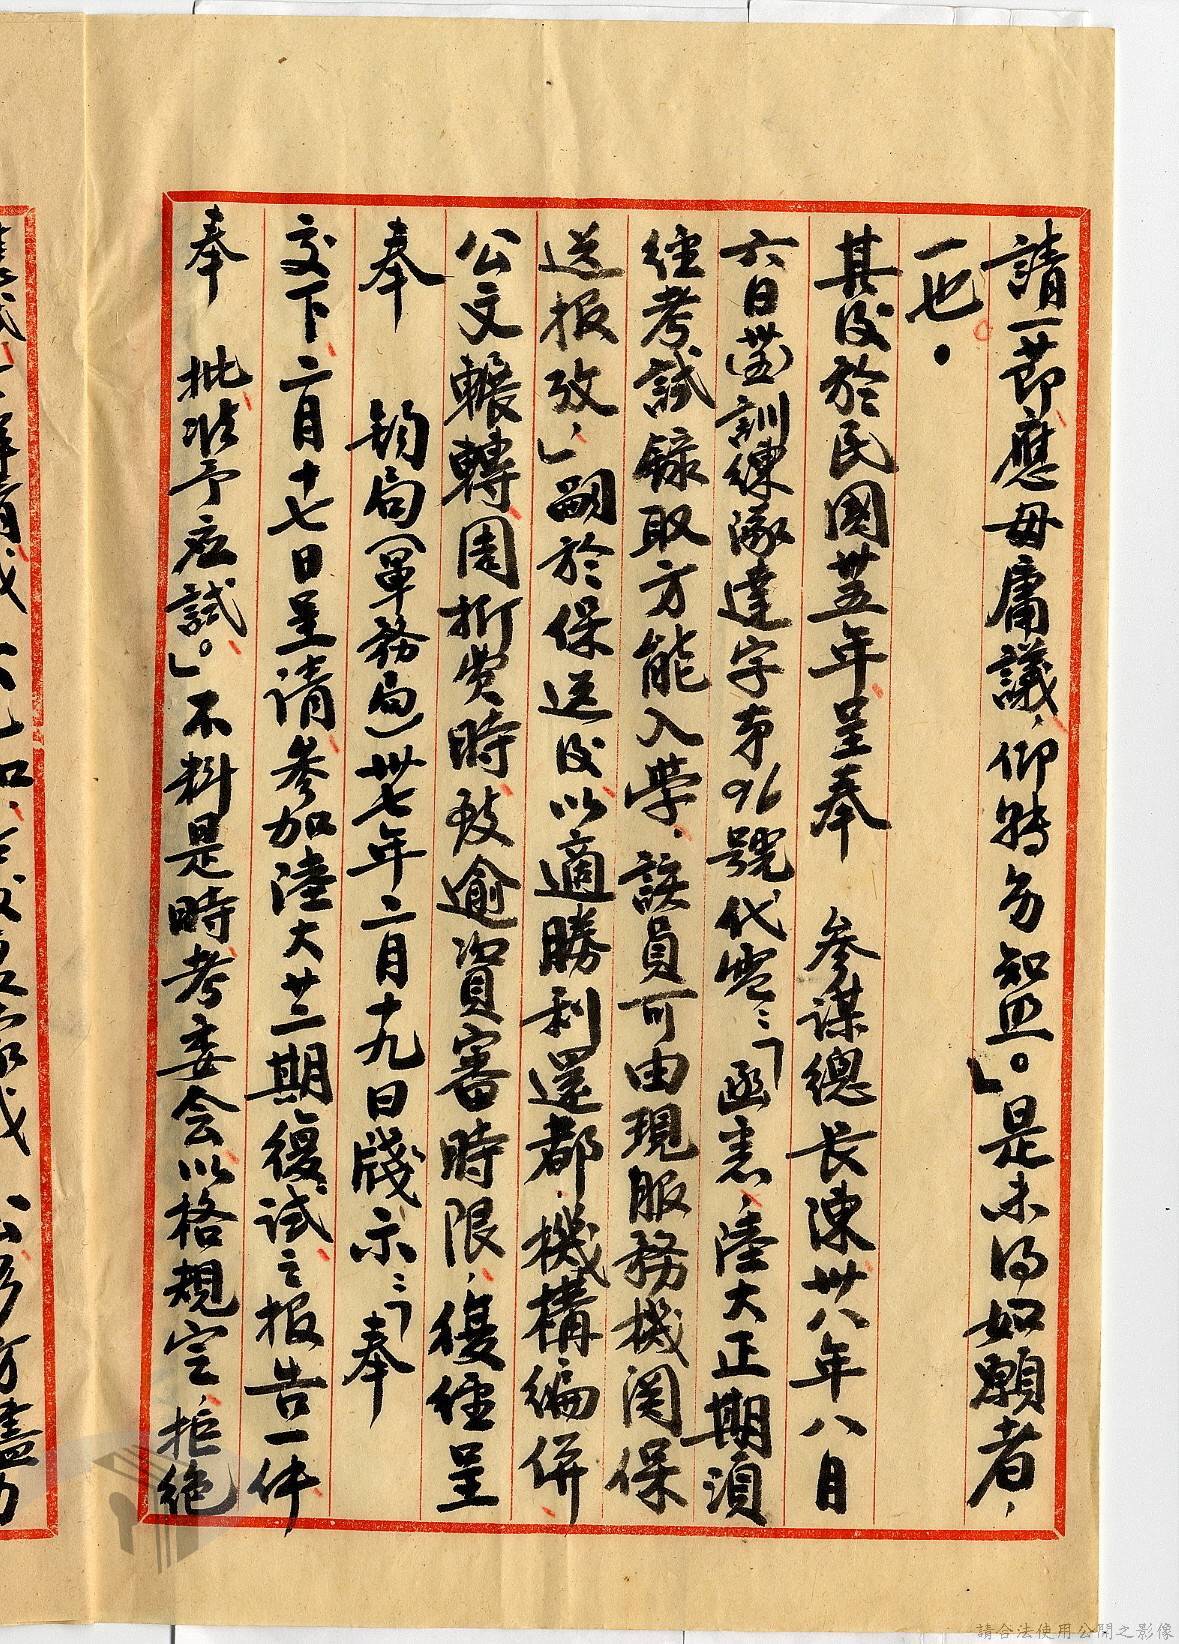 請一節應毋庸議，仰轉飭知照。」是未得如願者，
一也．
其後於民國卅五年呈奉　參謀總長陳卅八年八月
六日䓪訓練隊達字第96號代電：「函悉，陸大正期須
經考試錄取方能入學．該員可由現服務機関保
送报攷，」嗣於保送後以適勝利還都．機構編併
公文輾轉周折费時，致逾資審時限，復經呈
奉　鈞局（軍務局）卅七年二月十九日牋示：「奉
交下二月十七日呈请参加陸大廿二期復试之报告一件
奉　批准予应試。」不料是時考委会以格規定，拒絕
请合法使用公開之影像